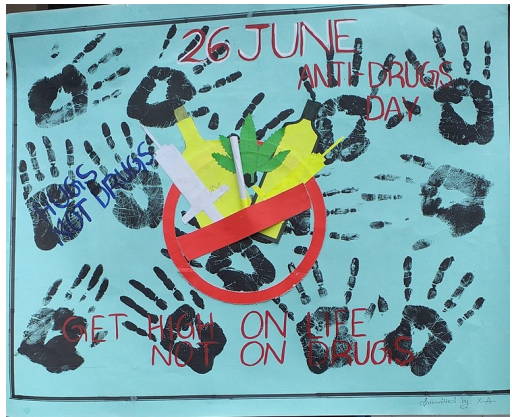 26 JUNE
ANTI-DRUGS
DAY
HUGS
NOT DRUGS
GET HIGH ON LIFE
NOT ON DRUGS
Submitted by X-A